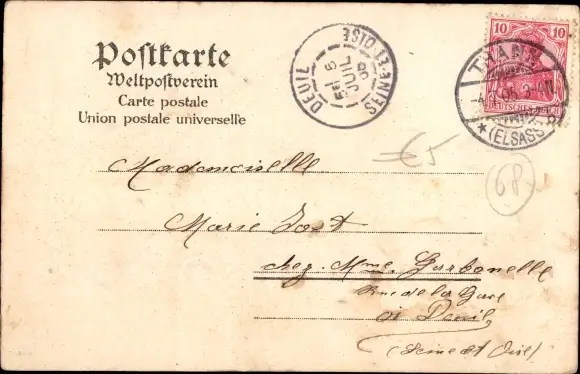 Postkarte
Weltpostverein
Carte postale
Union postale universelle
DEUIL
SEINE-ET-OISE
5
JUIL
10
10
DEUTSCHES REICH
THANN
(ELSASS)
€5
68
Mademoiselle
Marie Jost
chez Mme Garbonelle
Rue de la Gare
à Deuil
(Seine et Oise)